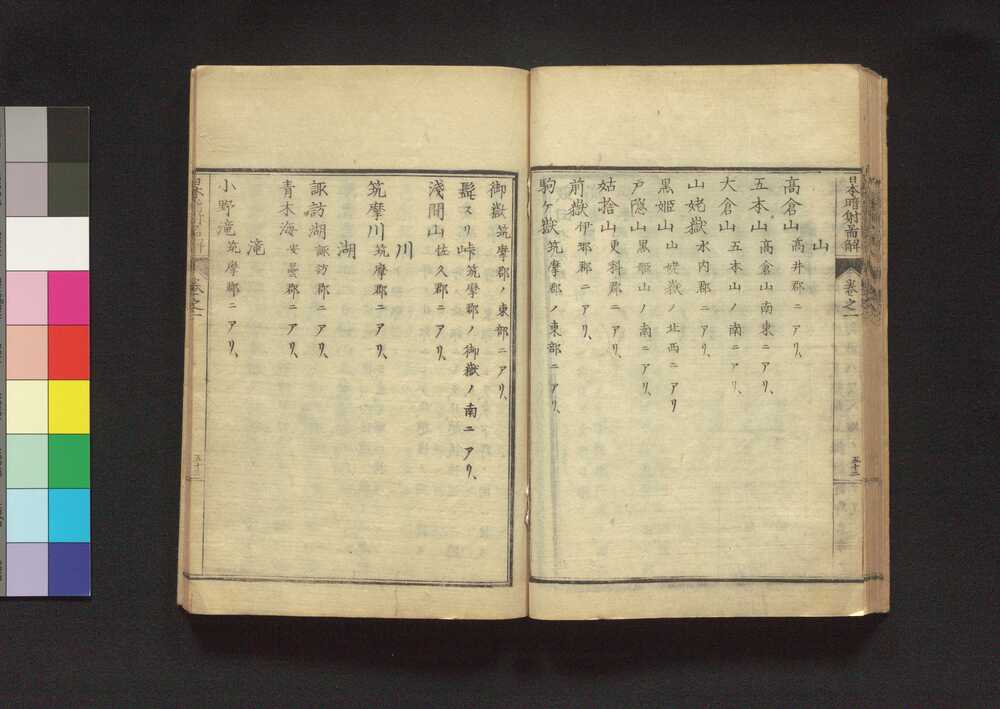 日本暗射図解 卷之一 五十二
山
高倉山 高井郡ニアリ、
五本山 高倉山南東ニアリ、
大倉山 五本山ノ南ニアリ、
山姥嶽 水内郡ニアリ、
黒姫山 山姥嶽ノ北西ニアリ
戸隠山 黒姫山ノ南ニアリ、
姑捨山 更科郡ニアリ、
前嶽 伊那郡ニアリ、
駒ケ嶽 筑摩郡ノ東部ニアリ、
御嶽 筑摩郡ノ東部ニアリ、
峠 筑摩郡ノ御嶽ノ南ニアリ、
淺間山 佐久郡ニアリ、
川
筑摩川 筑摩郡ニアリ、
湖
諏訪湖 諏訪郡ニアリ、
青木海 安曇郡ニアリ、
滝
小野滝 筑摩郡ニアリ、